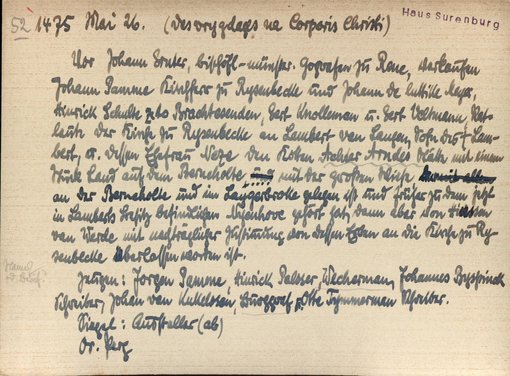 Haus Surenburg
52 1475 Mai 26. (des vrygdages na Corporis Christi)
Vor Johann Sonter, bischöfl.-münster. Gografen zu Rene, verkaufen
Johann Pamme Kirchherr zu Rysenbecke und Johann de luttike Meyer,
Hinrick Schulte zeto Brachtesenden, Gert Knolleman u. Gert Voltmann, Rat-
leute der Kirche zu Rysenbecke an Lambert van Langen, Sohn des † Lam-
bert, u. dessen Ehefrau Neze den Koten Achter Arndes Hus mit einem
Stück Land auf dem Barneholte und mit der großen Wiese
an der Barneholte und im Langerbroke gelegen ist und früher zu dem jetzt
in Lamberts Besitz befindlichen Nijenhove gehört hat, dann aber von
van Werde mit nachträglicher Zustimmung von dessen Erben an die Kirche zu Ry-
senbecke überlassen worden ist.
Zeugen: Jorgen Pamene, Hinrick Valsser, Wecherman, Johannes
Schreiber, Johan van Kukelosen, Burggraf, Otte Tymmerman Schreiber.
Siegel: Aussteller (ab)
Or. Perg